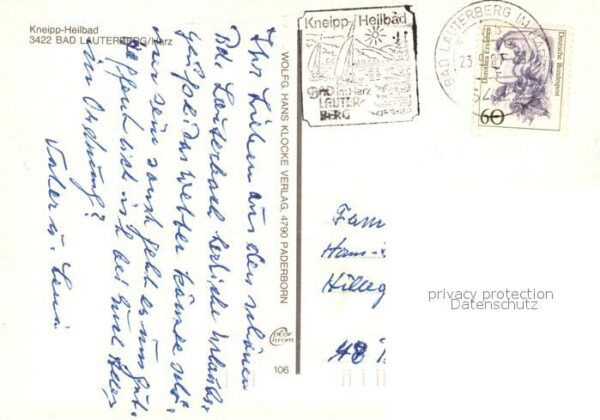 Kneipp-Heilbad
3422 BAD LAUTERBERG/Harz
Ihr Lieben aus den schönen
Bad Lauterbach herliche Urlaubs-
grüße. Das Wetter könnte schö-
ner sein sonst geht es uns gut.
Hoffentlich ist bei Euch alles
in Ordnung?
Vater u.
WOLFG. HANS KLOCKE VERLAG, 4790 PADERBORN
color
chrom
106
Kneipp-Heilbad
BAD im Harz
LAUTER-
BERG
BAD LAUTERBERG IM HARZ
23
Deutsche Bundespost
Dorothea Erxleben
60
Fam
Hans-
Hilleg
48
privacy protection
Datenschutz